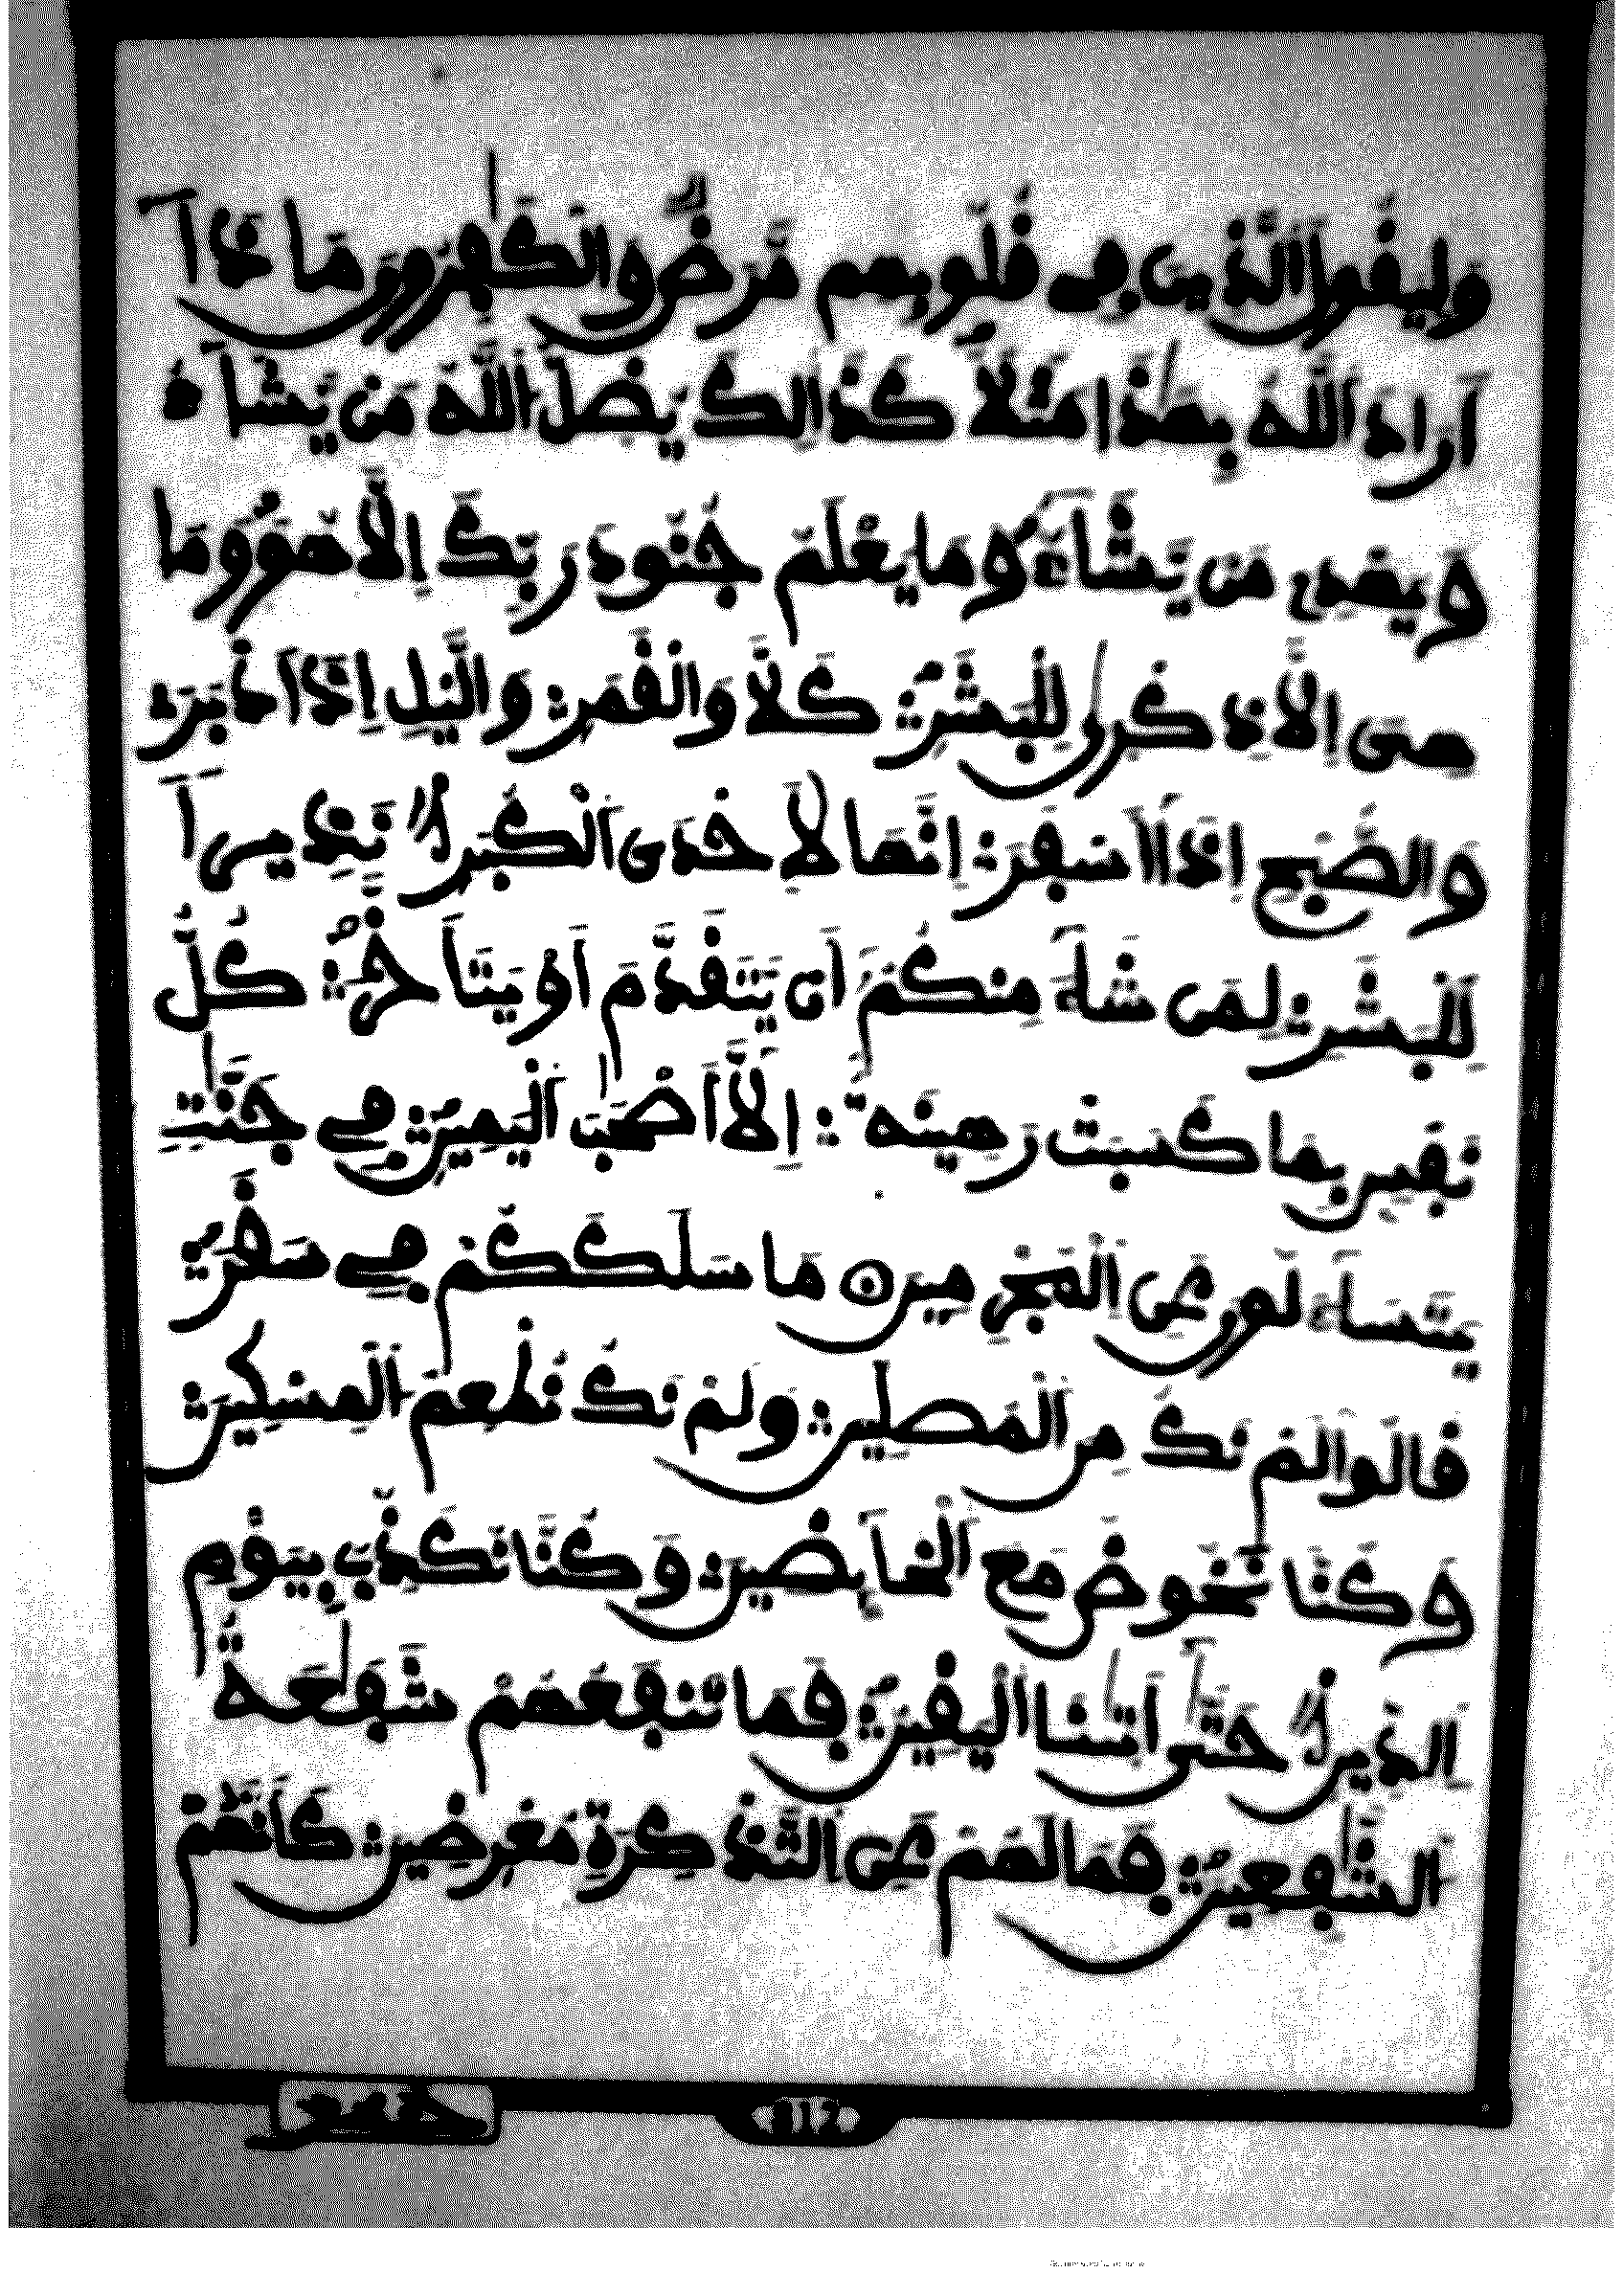 وَلِيَقُولَ الَّذِينَ فِي قُلُوبِهِم مَّرَضٌ وَالْكَٰفِرُونَ مَاذَآ
أَرَادَ اللَّهُ بِهَٰذَا مَثَلًا كَذَٰلِكَ يُضِلُّ اللَّهُ مَنْ يَّشَآءُ
وَيَهْدِي مَنْ يَّشَآءُ وَمَا يَعْلَمُ جُنُودَ رَبِّكَ إِلَّا هُوَ وَمَا
هِيَ إِلَّا ذِكْرَىٰ لِلْبَشَرِ كَلَّا وَالْقَمَرِ وَالَّيْلِ إِذْ أَدْبَرَ
وَالصُّبْحِ إِذَآ أَسْفَرَ إِنَّهَا لَإِحْدَى الْكُبَرِ نَذِيرًا
لِّلْبَشَرِ لِمَن شَآءَ مِنكُمُۥٓ أَنْ يَّتَقَدَّمَ أَوْ يَتَأَخَّرَ كُلُّ
نَفْسٍ بِمَا كَسَبَتْ رَهِينَةٌ إِلَّآ أَصْحَٰبَ الْيَمِينِ فِي جَنَّٰتٍ
يَتَسَآءَلُونَ عَنِ الْمُجْرِمِينَ مَا سَلَكَكُمْ فِي سَقَرَ
قَالُوا لَمْ نَكُ مِنَ الْمُصَلِّينَ وَلَمْ نَكُ نُطْعِمُ الْمِسْكِينَ
وَكُنَّا نَخُوضُ مَعَ الْخَآئِضِينَ وَكُنَّا نُكَذِّبُ بِيَوْمِ
الدِّينِ حَتَّىٰ أَتَىٰنَا الْيَقِينُ فَمَا تَنفَعُهُمْ شَفَٰعَةُ
الشَّٰفِعِينَ فَمَا لَهُمْ عَنِ التَّذْكِرَةِ مُعْرِضِينَ كَأَنَّهُمْ
812